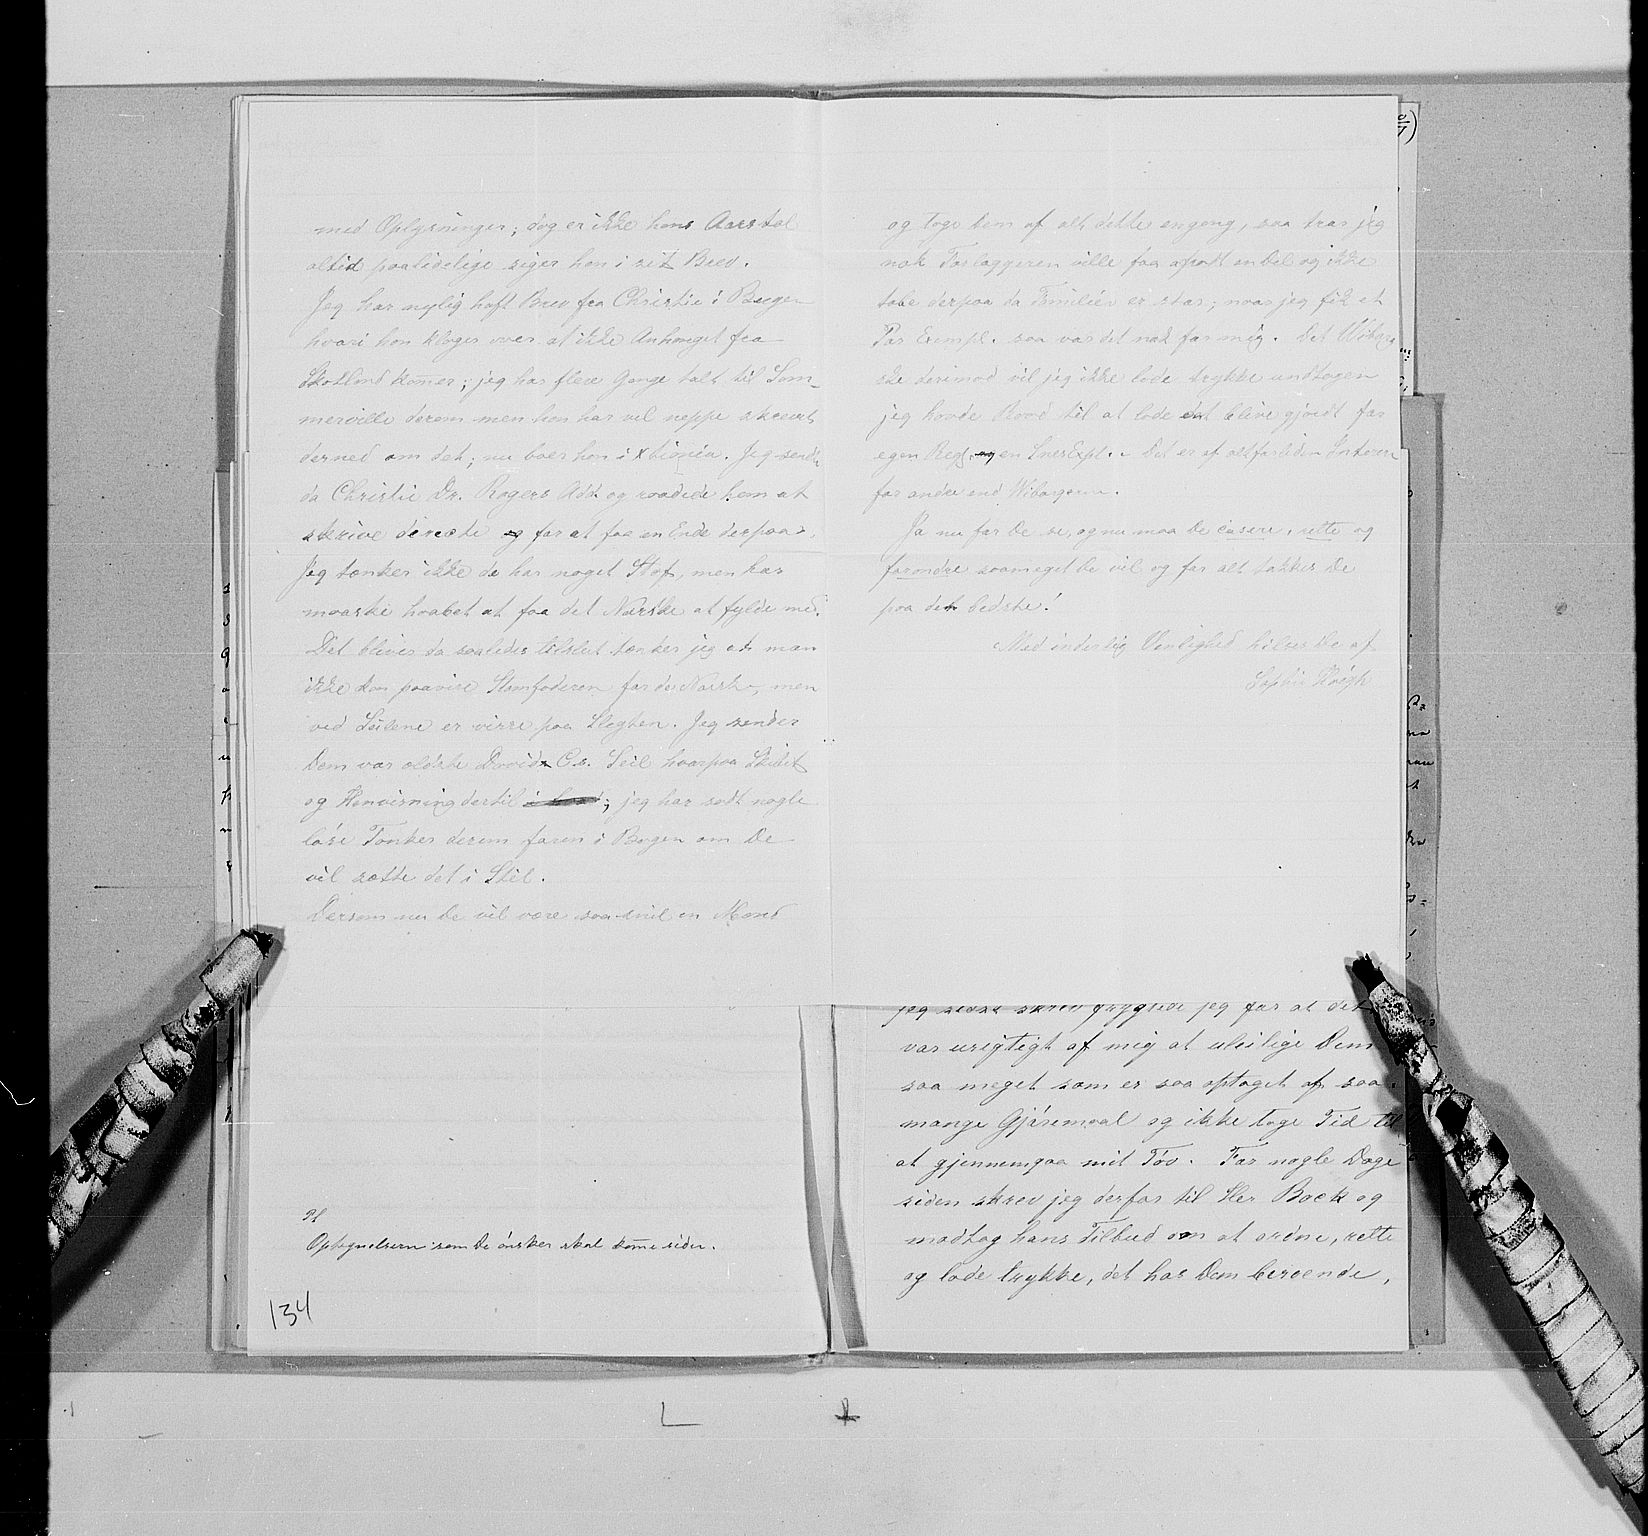 med Oplysninger; dog er ikke hans Aarstal
altid paalidelige siger han i sit Brev.
Jeg har nylig haft Brev fra Christie i Bergen
hvori han klager over at ikke Anhanget fra
Skotland kommer; jeg har flere Gange talt til Som-
merville derom men han har vel neppe skrevet
derned om det; nu boer han i Xtiania. Jeg sendte
da Christie Dr. Rogers Add. og raadede ham at
skrive directe for at faa en Ende derpaa.
Jeg tænker ikke de har noget Stof, men har
maaske haabet at faa det Norske at fylde med.
Det bliver da saaledes tilslut tænker jeg at man
ikke kan paavise Stamfaderen for de Norske, men
ved Seilene er visse paa Slegten. Jeg sender
Dem vor ældste Davids C.s. Seil hvorpaa Skibet
og Henvisning dertil; jeg har sadt nogle
løse Tanker derom foran i Bogen om De
vil sætte det i Stil.
Dersom nu De vil være saa snil en Mand
Ps
Optegnelsern som De ønsker skal komme siden.
134
og tage dem af alt dette engang, saa tror jeg
nok Forlæggeren ville faa afsat en Del og ikke
tabe derpaa da Familien er stor; naar jeg fik et
Par Exempl. saa var det nok for mig. Det Wiborg
ske derimod vil jeg ikke lade trykke undtagen
jeg havde Raad til at lade det blive gjordt for
egen Reg. en Snes Expl. Det er af altfor liden Interesse
for andre end Wiborgerne.
Ja nu får De se, og nu maa De casere, rette og
forandre saameget De vil og for alt takkes De
paa det bedste!
Med inderlig Venlighed hilses De af
Sophie
jeg sidst skrev frygtede jeg for at det
var urigtigt af mig at uleilige Dem
saa meget som er saa optaget af saa
mange Gjøremaal og ikke tage Tid til
at gjennemgaa mit Tøv. For nogle Dage
siden skrev jeg derfor til Her Back og
modtog hans Tilbud om at ordne, rette
og lade trykke, det har Dem beroende,